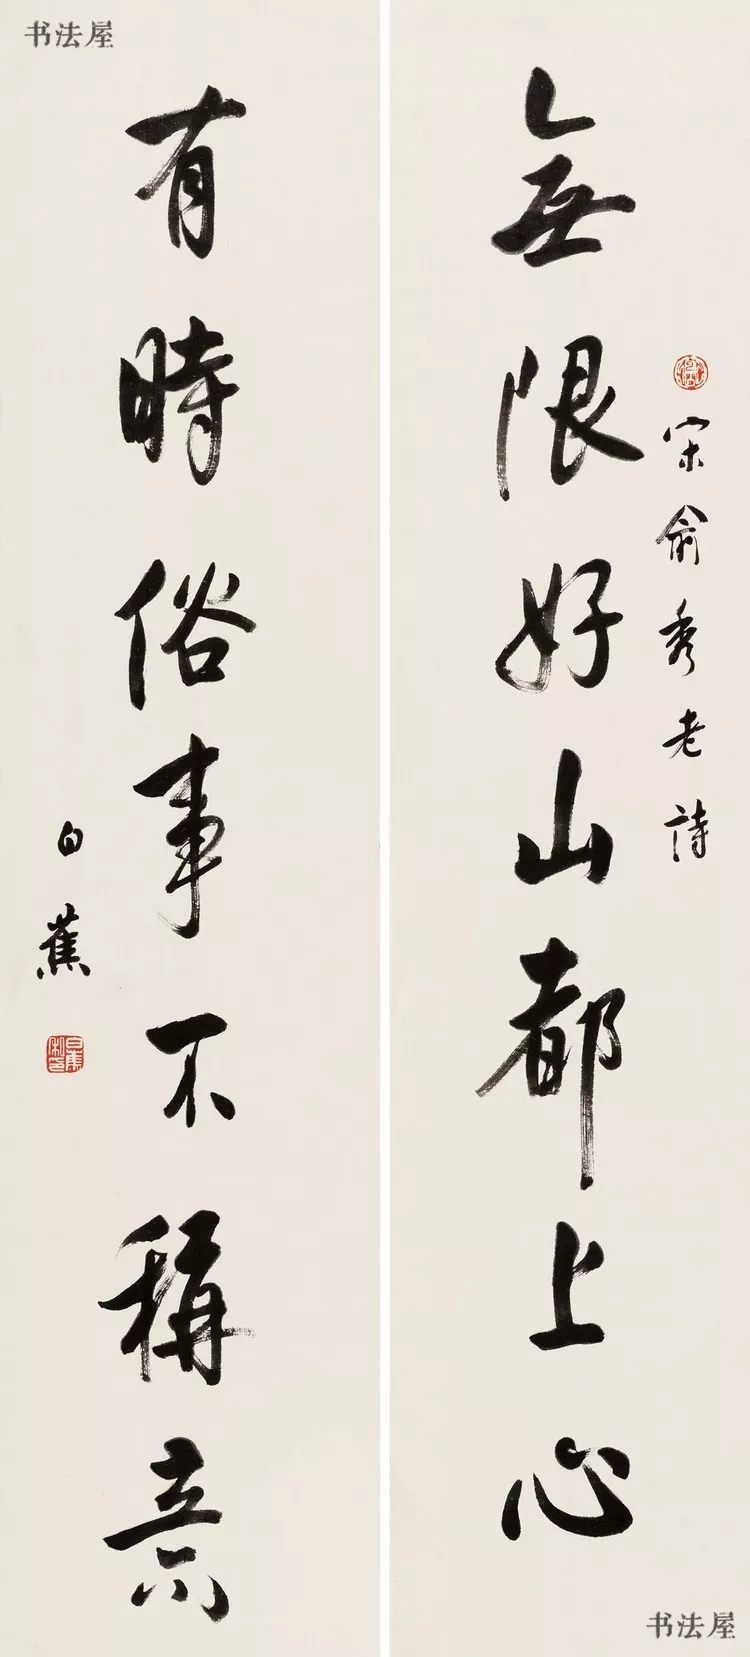 宋俞秀老詩
無限好山都上心
有時俗事不稱意
白蕉
书法屋
书法屋